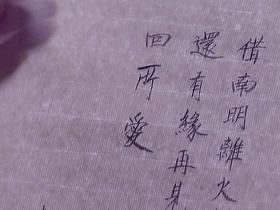 借南明離火
還有緣再見
四所愛